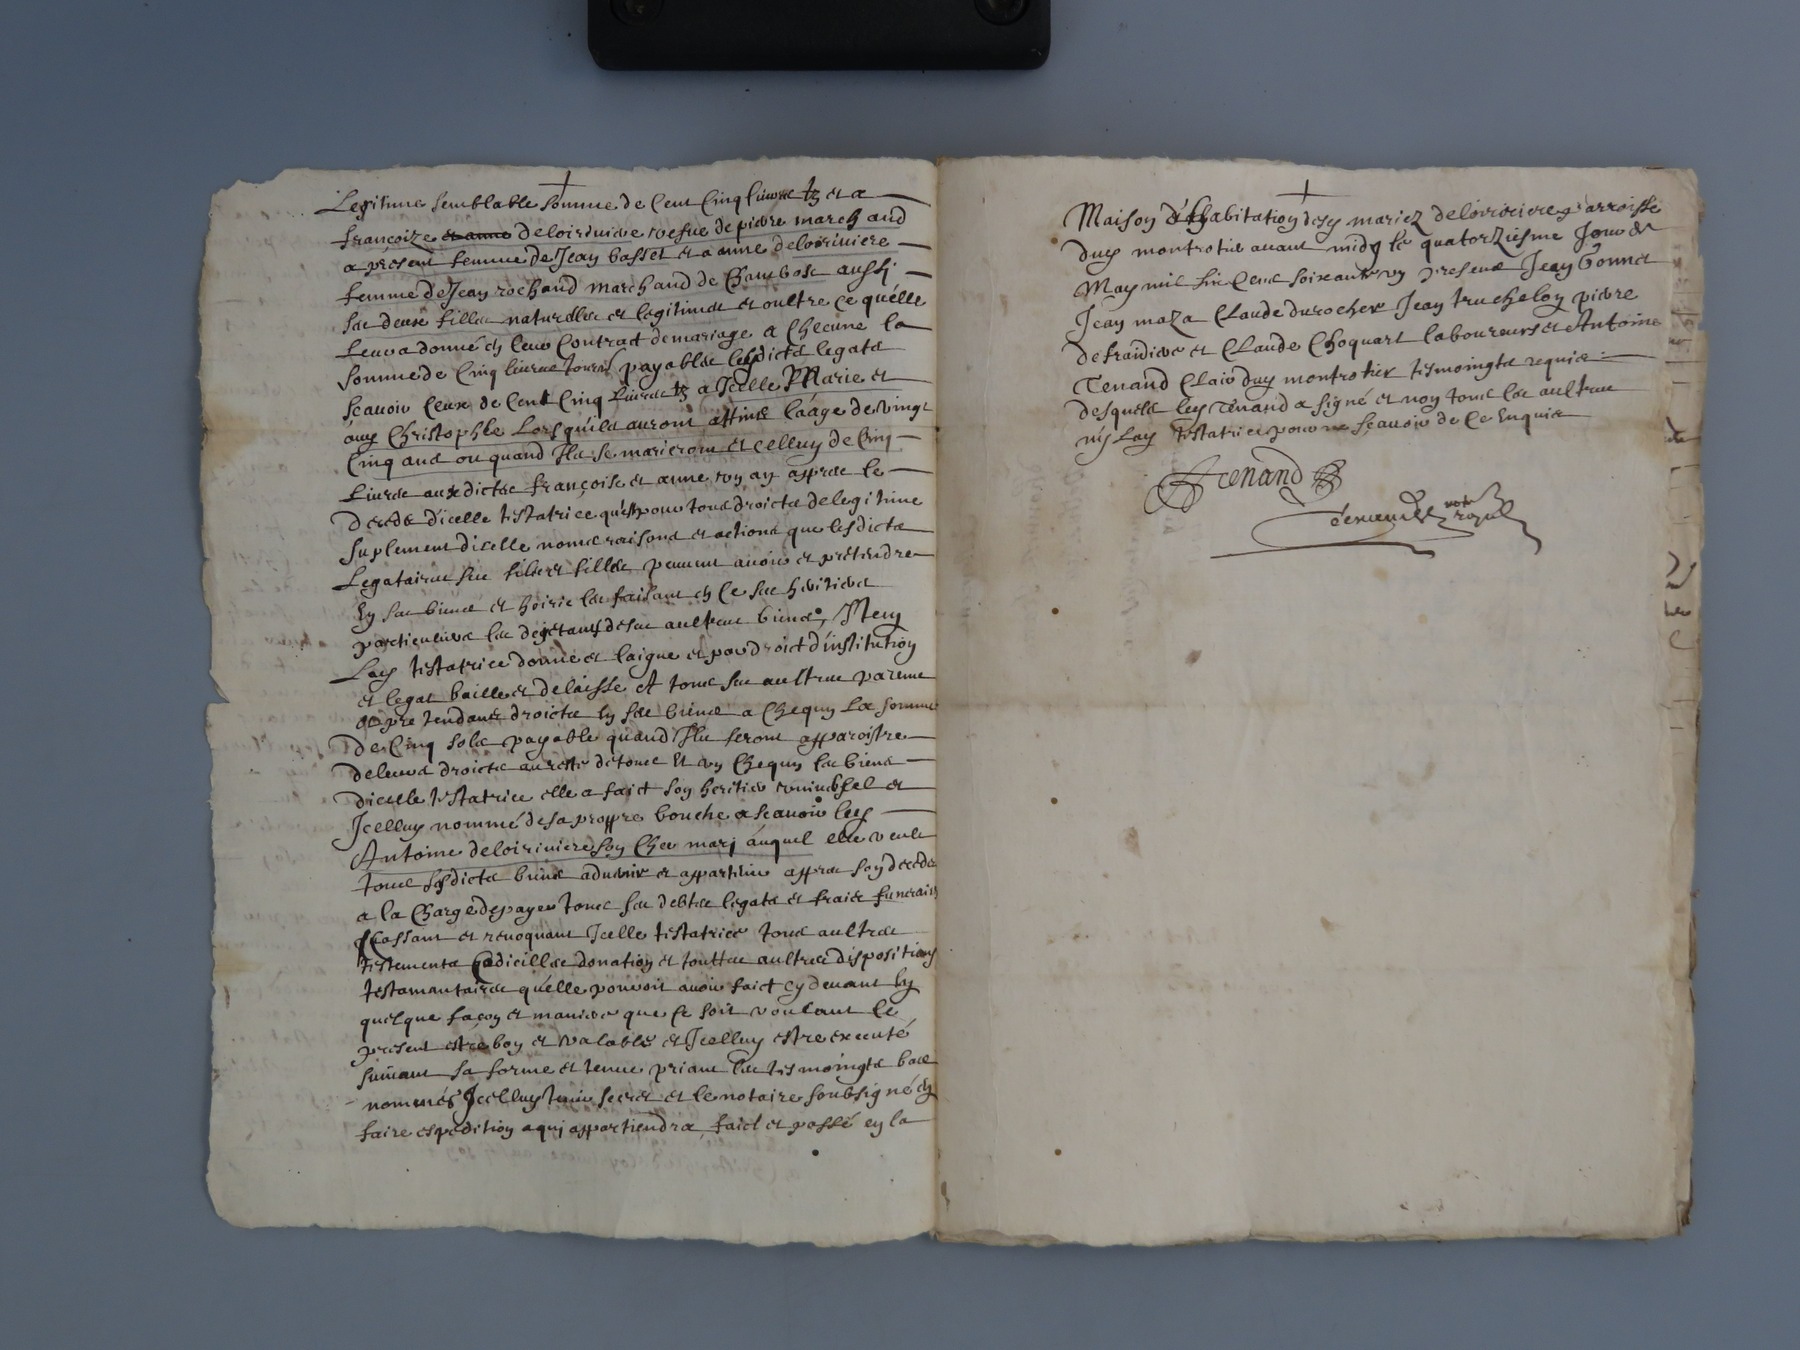 Legitime semblable somme de Cent Cinq livres tz et a
françoize et anne deloiriniere vesfue de pierre marchand
a present femme de Jean basset et a anne deloiriniere
femme de Jean rochand marchand de Chambost aussi
ses deux filles naturelles et legitimes et oultre ce qu'elle
leur a donné en leur Contract de mariage a Checune la
somme de Cinq livres tourn payables lesdicts legats
scauoir Ceux de Cent Cinq liures tz a Jcelle Marie et
Christophle Lors quils auront attint l'aage de vingt
Cinq ans ou quand Ils se marieront et Celluy de Cinq
liures auxdictes françoise et anne vn an appres le
deceds dicelle testatrice pour tous droicts de legitime
suplement dicelle noms raisons et actions que lesdicts
Legataires ses fils et filles peuuent auoir et pretendre
En ses biens et hoirie les faisant en ce ses heritiers
particuliers les de ses aultres biens, Item
Lad testatrice donne et laigue et par droict d'institution
et legat baille et delaisse A tous ses aultres parents
pretendants droicts En ses biens a Chequn La somme
de Cinq sols payable quand Ils feront apparoistre
de leurs droicts au reste de tous Et vn Chequn les biens
dicelle testatrice elle a faict son heritier vniuersel et
Jcelluy nommé de sa propre bouche a scauoir led
Antoine deloiriniere son Cher mari auquel elle veult
tous sesdicts biens aduenir et appartenir appres son deceds
a la Charge de payer tous ses debtes legats et frais funerais
Cassant et reuoquant Jcelle testatrice tous aultres
testements Codicilles donation et touttes aultres dispositions
testamantaires qu'elle pouroit auoir faict cy deuant En
quelque façon et maniere que ce soit voulant le
present estre bon et valable et Jcelluy estre executé
suiuant sa forme et teneur priant les tesmoingts bas
nommés Jcelluy tenir secret et le notaire soubsigné en
faire expedition a qui appartiendra, faict et passé en la
Maison d'habitation desd mariez deloiriniere parroisse
dud montrotier auant midy le quatorziesme Jour de
May mil six Cens soixante vn presens Jean Gonnet
Jean maza Claude durocher Jean trucheloy pierre
defrandiere et Claude Choquart laboureurs et Antoine
Tenand Clair dud montrotier tesmoingts requis
desquels led Tenand a signé et non tous les aultres
ny Lad testatrice pour ne scauoir de ce Enquis
A Tenand
not royal